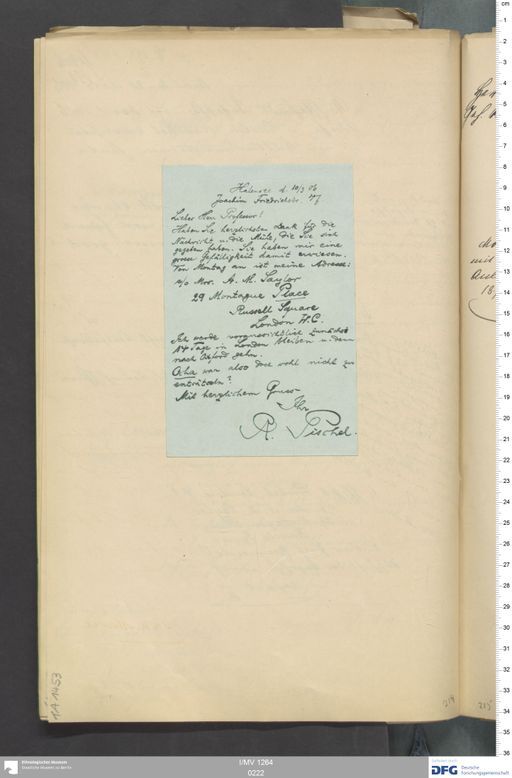 Halensee d. 10/3 06
Joachim Friedrichstr. 47
Lieber Herr Professor!
Haben Sie herzlichsten Dank für die
Nachricht u. die Mühe, die Sie sich
gegeben haben. Sie haben mir eine
grosse Gefälligkeit damit erwiesen.
Von Montag an ist meine Adresse:
c/o Mrs. A. M. Saylor
29 Montague Place
Russell Square
London W.C.
Ich werde voraussichtlich zunächst
14 Tage in London bleiben u. dann
nach Oxford gehn.
war also doch wohl nicht zu
enträtseln?
Mit herzlichem Gruss
Ihr
R. Pischel.
1A 1453
219
215
Ethnologisches Museum
Staatliche Museen zu Berlin
I/MV 1264
0222
DFG Deutsche
Forschungsgemeinschaft